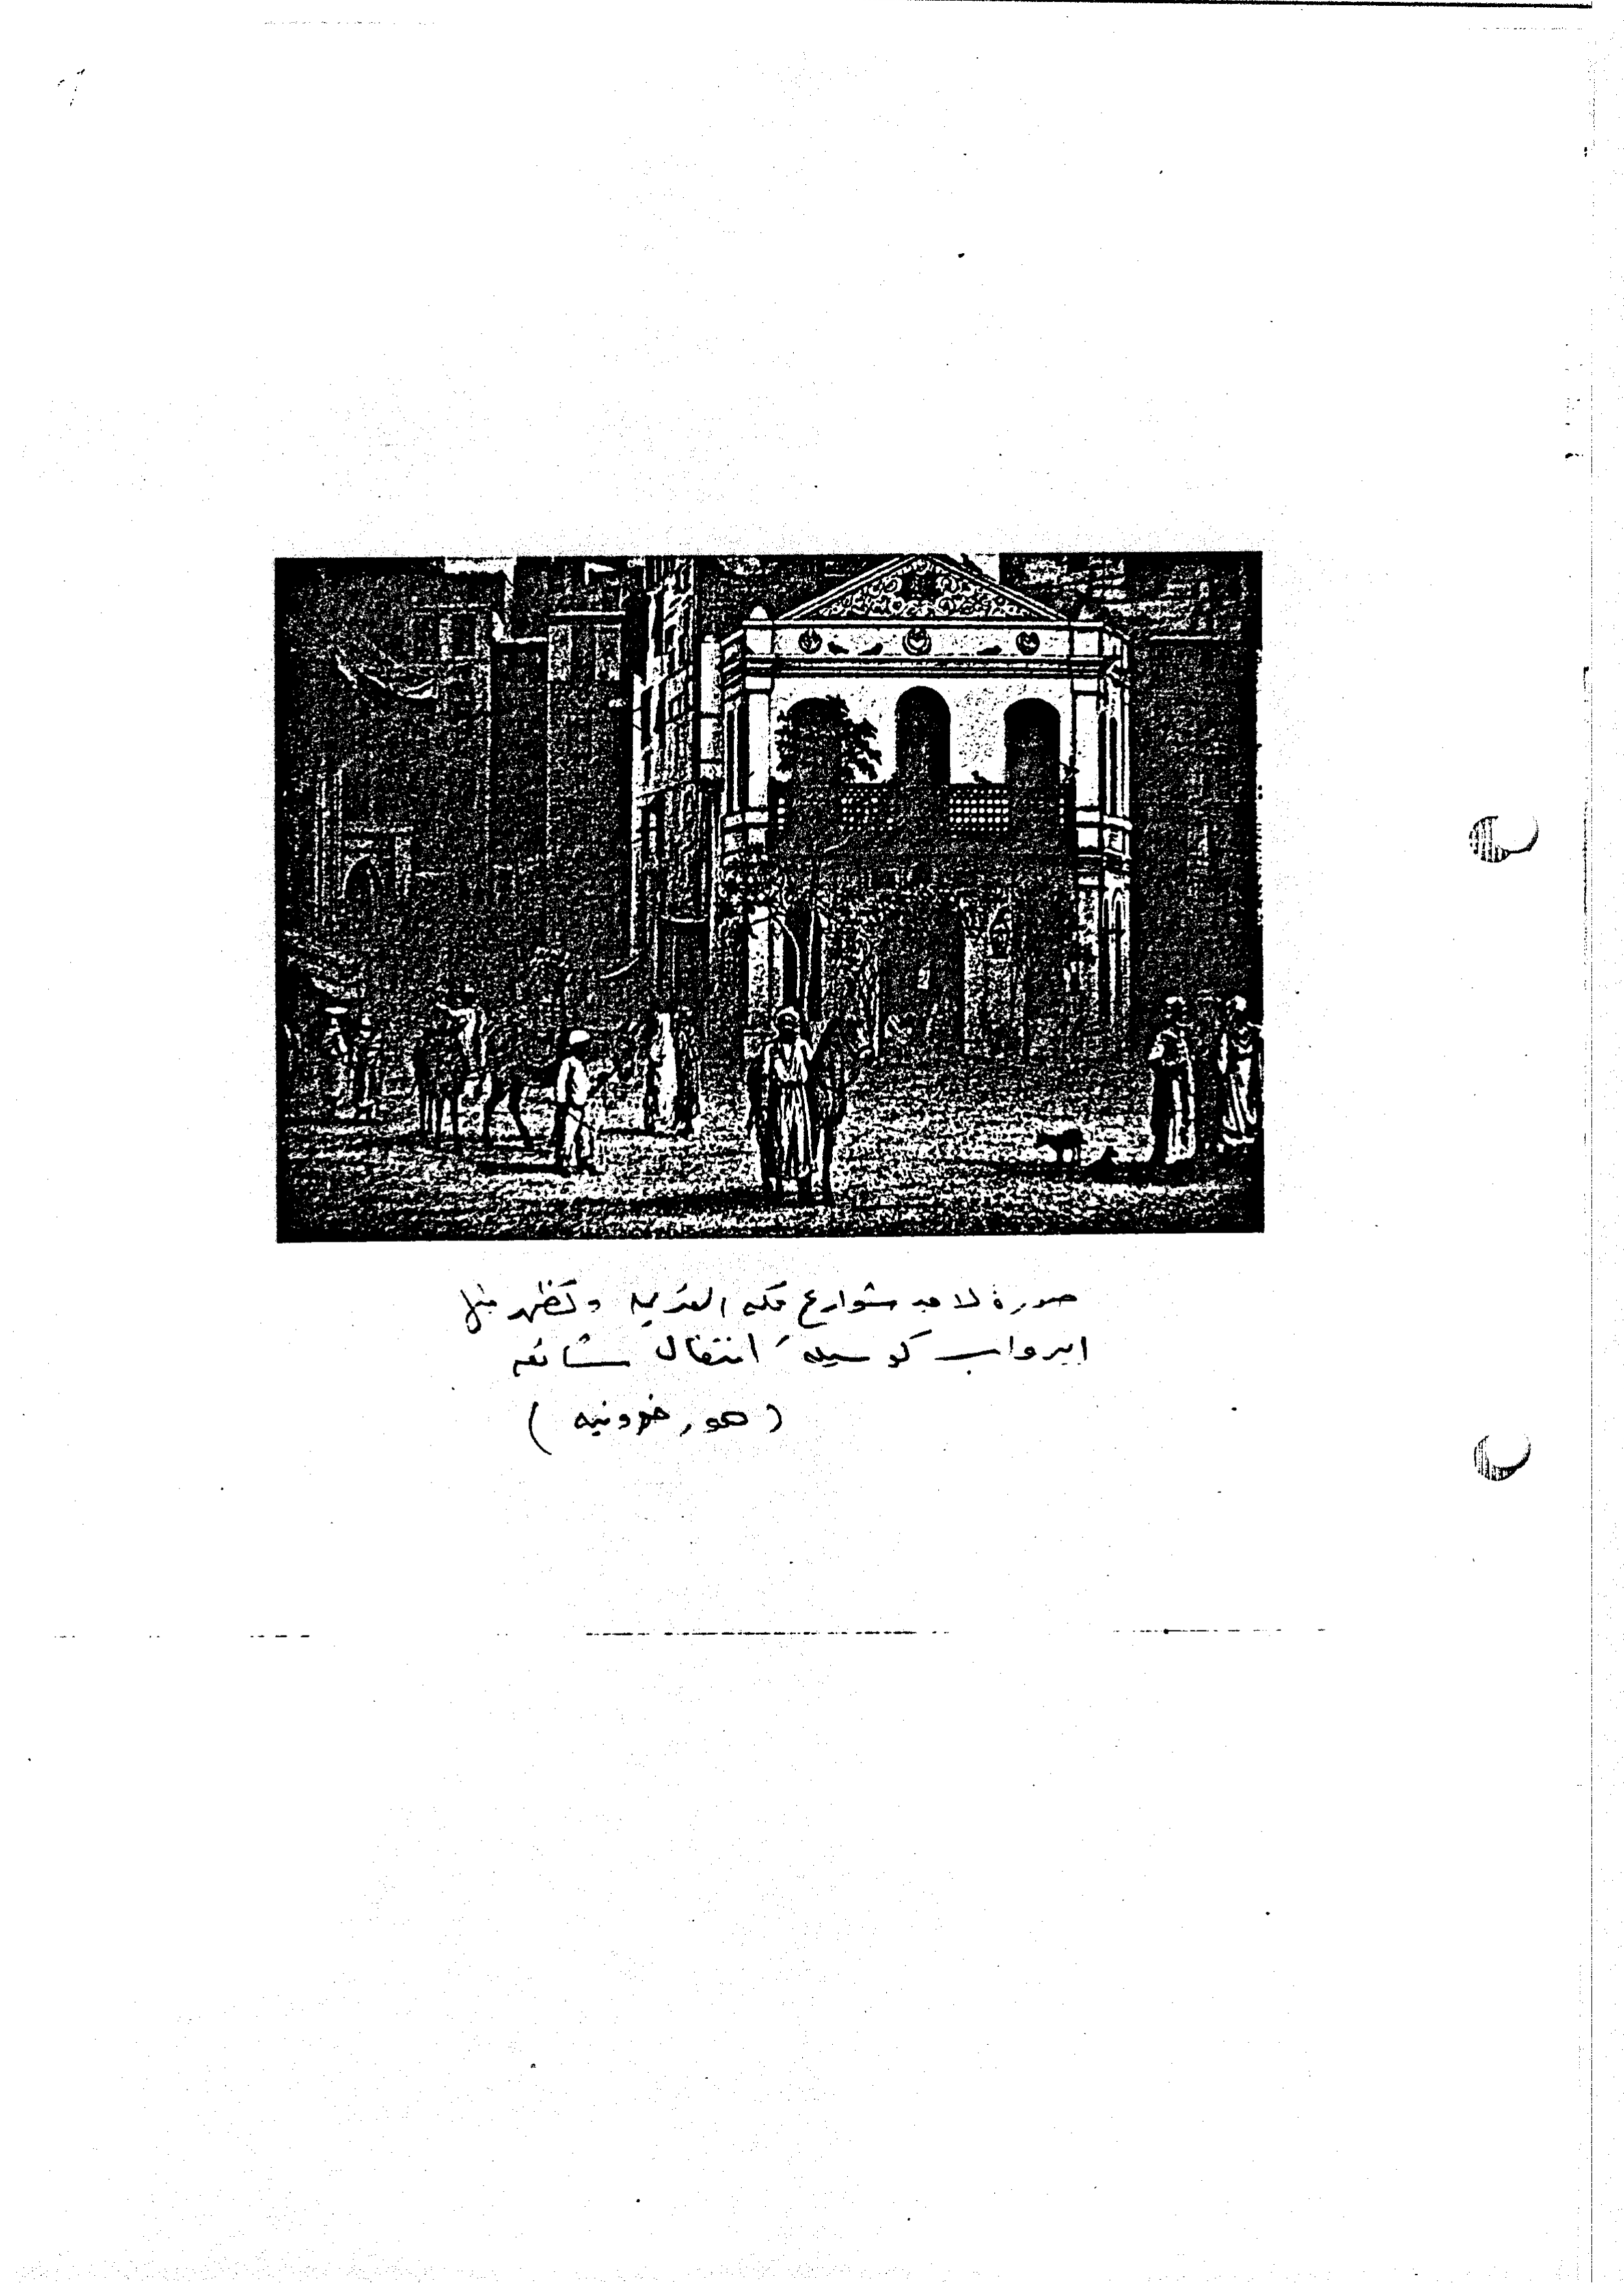 صورة لاحد شوارع مكه القديمه وتظهر فيها
الدواب كوسيلة انتقال شائعه
(هورخرونيه)